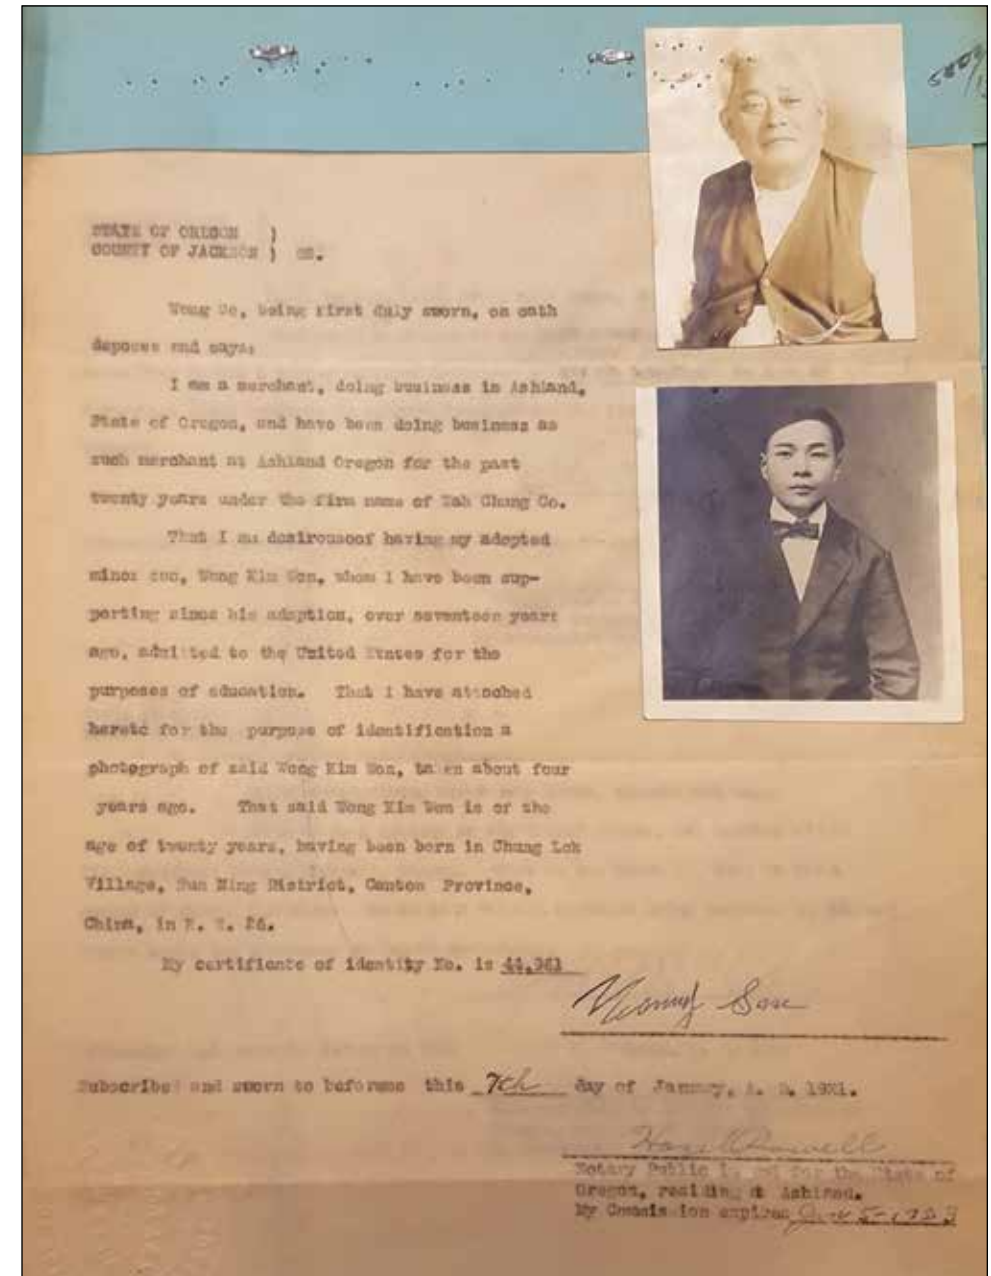 STATE OF OREGON )
COUNTY OF JACKSON ) SS.
Wong So, being first duly sworn, on oath
deposes and says:
I am a merchant, doing business in Ashland,
State of Oregon, and have been doing business as
such merchant at Ashland Oregon for the past
twenty years under the firm name of Wah Chung Co.
That I am desirousof having my adopted
minor son, Wong Kim Won, whom I have been sup-
porting since his adoption, over seventeen years
ago, admitted to the United States for the
purposes of education. That I have attached
hereto for the purpose of identification a
photograph of said Wong Kim Won, taken about four
years ago. That said Wong Kim Won is of the
age of twenty years, having been born in Chung Lok
Village, Sun Ning District, Canton Province,
China, in K. S. 26.
My certificate of identity No. is 44,961
Wong Soe
Subscribed and sworn to beforeme this 7th day of January, A. D. 1921.
Notary Public in and for the State of
Oregon, residing at Ashland.
My Commission expires